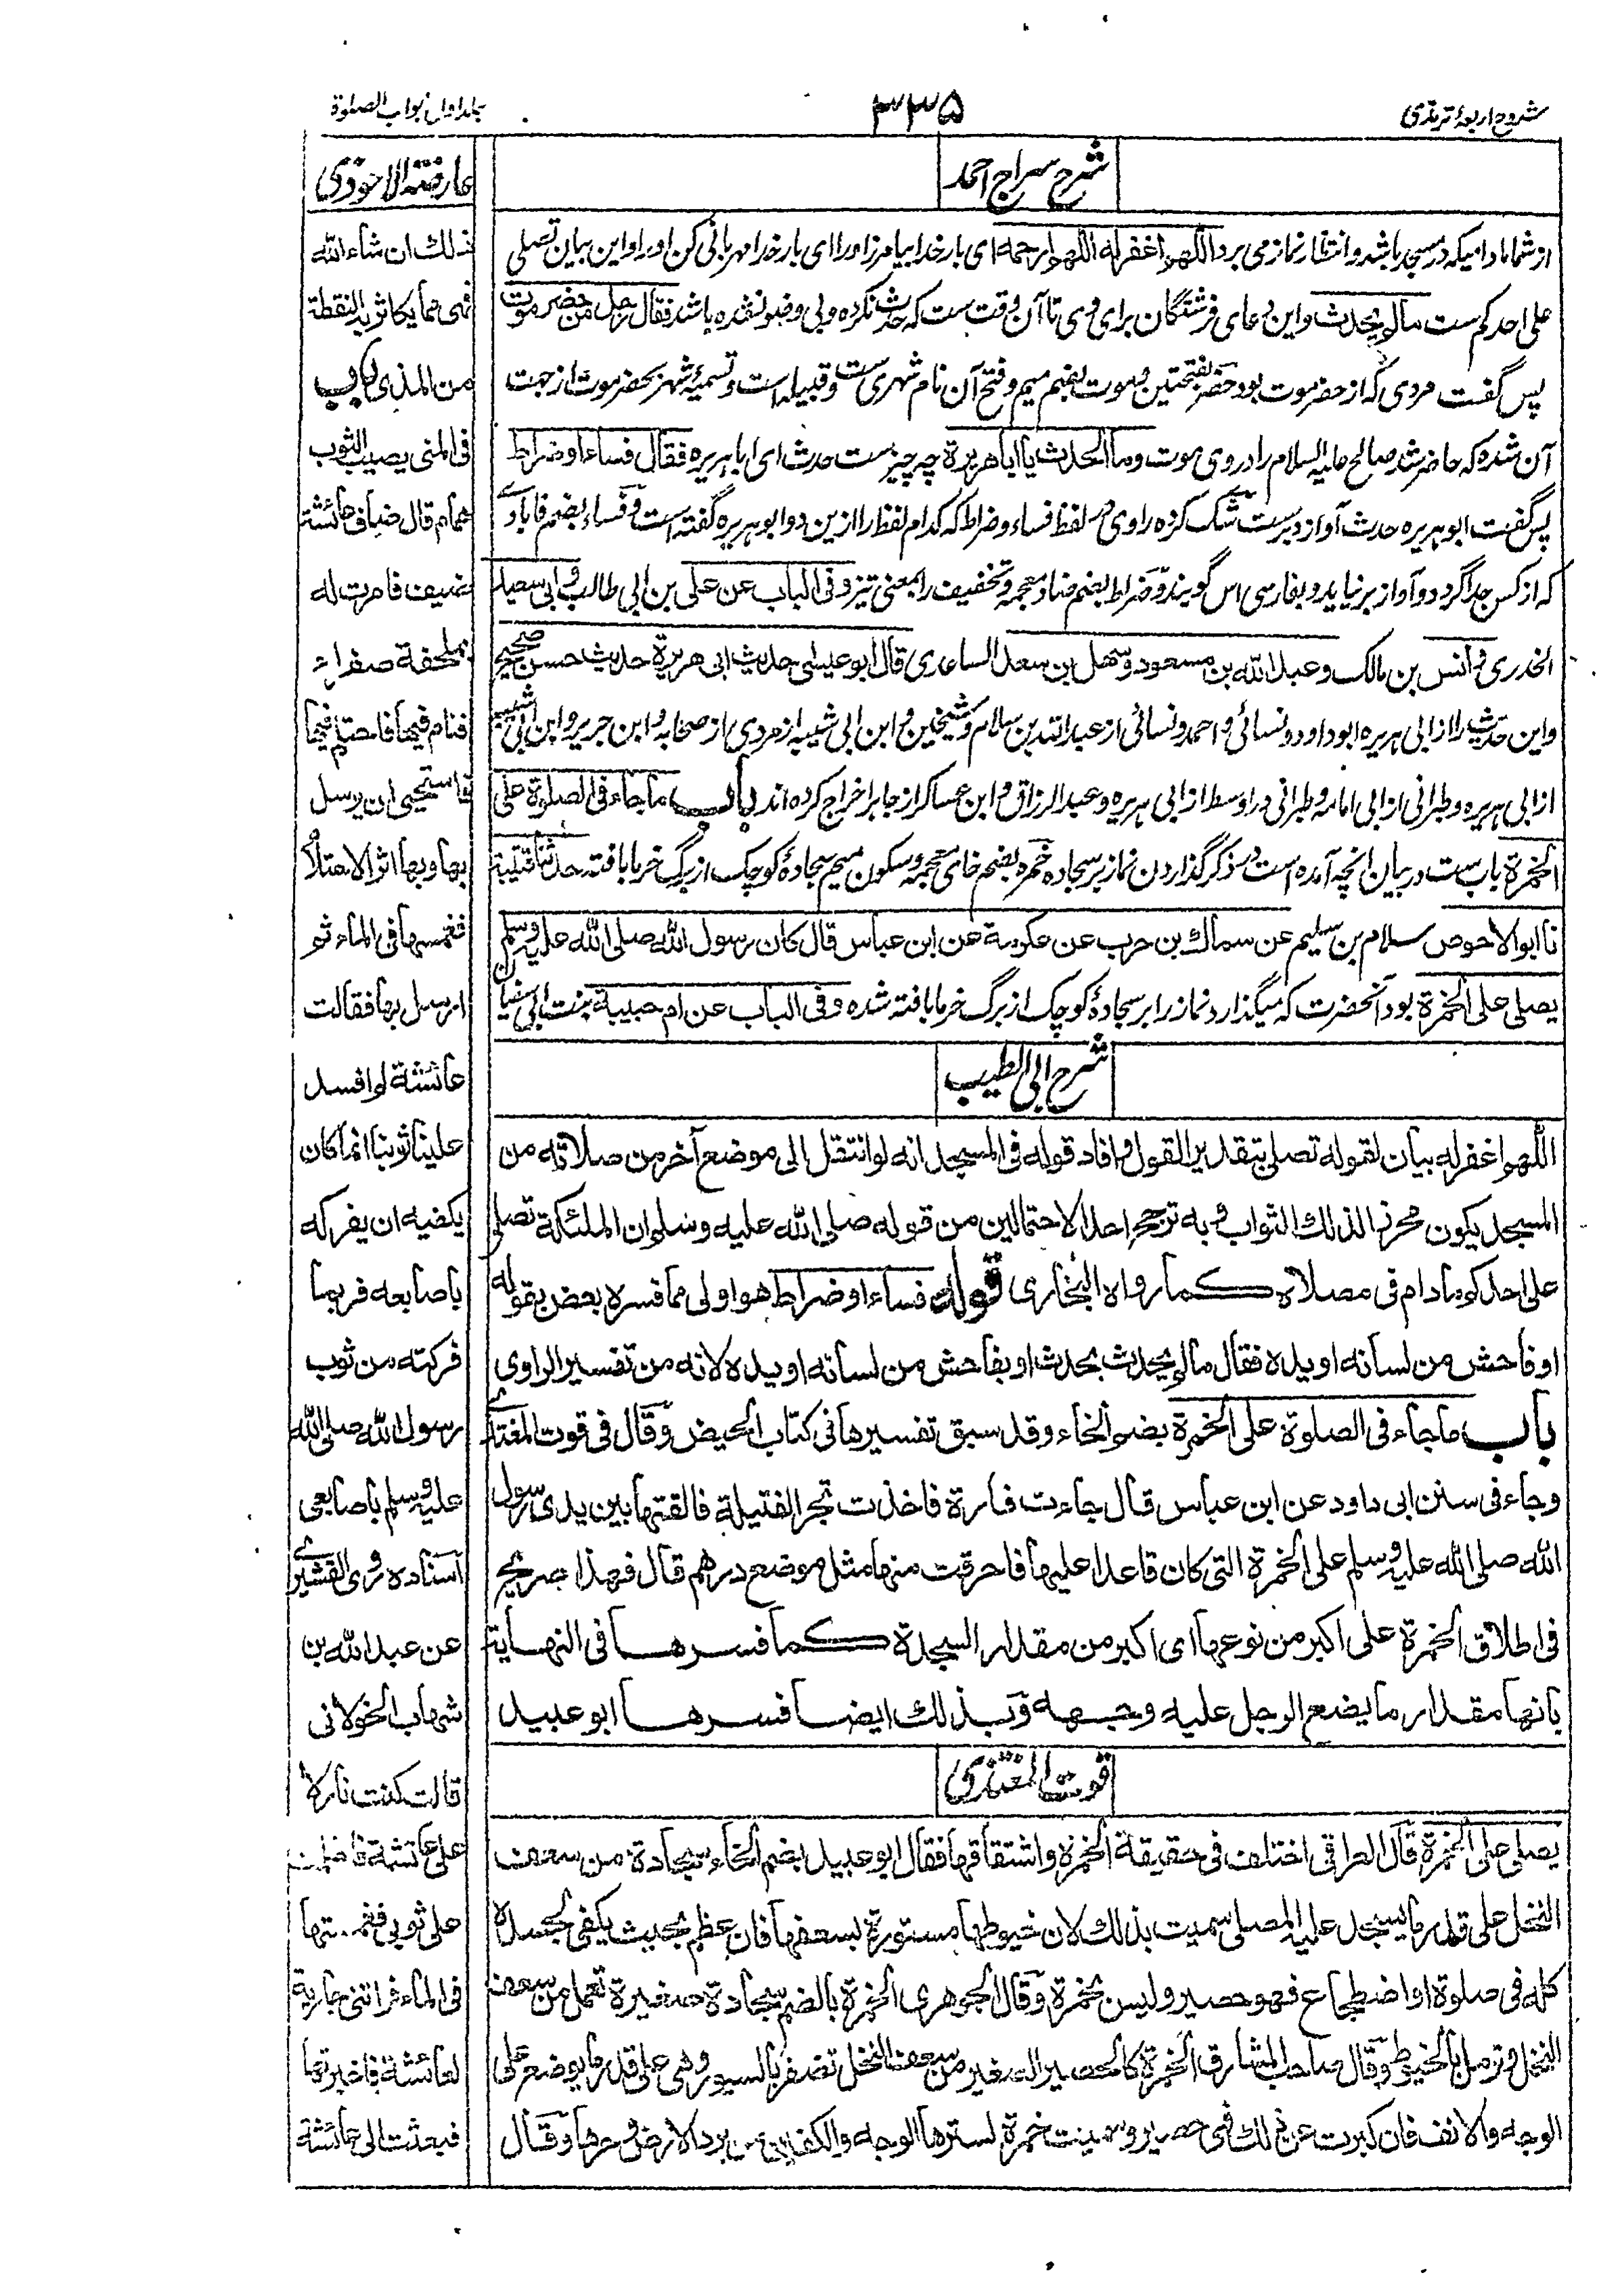 شروح اربعۀ ترمذی
۳۳۵
جلد اول ابواب الصلوة
شرح سراج احمد
از شما مادامیکه در مسجد باشد و انتظار نماز می برد اللهم اغفر له اللهم ارحمه ای بار خدا بیامرز او را ای بار خدا مهربانی کن او را و این بیان تصلی
علی احدکم ست مالم یحدث و این دعای فرشتگان برای وی تا آن وقت ست که حدث نکرده و بی وضو نشده باشد فقال رجل من حضرموت
پس گفت مردی که از حضرموت بود حضر بفتحتین و موت بضم میم و فتح آن نام شهری ست و قبیله است و تسمیۀ شهر بحضرموت از جهت
آن شده که حاضر شد صالح علیه السلام را در وی موت وما الحدث یا ابا هریرة چه چیز ست حدث ای ابا هریره فقال فساء او ضراط
پس گفت ابو هریره حدث آواز دبر ست شک کرده راوی در لفظ فساء و ضراط که کدام لفظ را ازین دو ابو هریره گفته است و فساء بضم فا بادے
که از کس جدا گردد و آواز بر نیاید و بفارسی اس گویند و ضراط بضم ضاد معجمه و تخفیف را بمعنی تیز وفی الباب عن علی بن ابی طالب وابی سعید
الخدری وانس بن مالک وعبد الله بن مسعود وسهل بن سعد الساعدی قال ابو عیسی حدیث ابی هریرة حدیث حسن صحیح
و این حدیث را از ابی هریره ابو داود و نسائی و احمد و نسائی از عبد الله بن سلام و شیخین و ابن ابی شیبه از مردی از صحابه و ابن جریر و ابن ابی شیبه
از ابی هریره و طبرانی از ابی امامه و طبرانی در اوسط از ابی هریره و عبد الرزاق و ابن عساکر از جابر اخراج کرده اند باب ما جاء فی الصلوة علی
الخمرة باب ست در بیان انچه آمده است در ذکر گذاردن نماز بر سجاده خمره بضم خای معجمه و سکون میم سجادۀ کوچک از برگ خرما بافته حدثنا قتیبة
نا ابو الاحوص سلام بن سلیم عن سماك بن حرب عن عکرمة عن ابن عباس قال کان رسول الله صلی الله علیه وسلم
یصلی علی الخمرة بود آنحضرت که میگذارد نماز را بر سجادۀ کوچک از برگ خرما بافته شده وفی الباب عن ام حبیبة بنت ابی سفیان
شرح ابی الطیب
اللهم اغفر له بیان لقوله تصلی بتقدیر القول وافاد قوله فی المسجد انه لو انتقل الی موضع آخر من صلاته من
المسجد یکون محرزا لذلك الثواب وبه ترجح احد الاحتمالین من قوله صلی الله علیه وسلم ان الملئکة تصلی
علی احدکم ما دام فی مصلاه کما رواه البخاری قوله فساء او ضراط هو اولی مما فسره بعض بقوله
او فاحش من لسانه او یده فقال مالم یحدث بحدث او بفاحش من لسانه او یده لانه من تفسیر الراوی
باب ما جاء فی الصلوة علی الخمرة بضم الخاء وقد سبق تفسیرها فی کتاب الحیض وقال فی قوت المغتذے
وجاء فی سنن ابی داود عن ابن عباس قال جاءت فارة فاخذت تجر الفتیلة فالقتها بین یدی رسول
الله صلی الله علیه وسلم علی الخمرة التی کان قاعدا علیها فاحرقت منها مثل موضع درهم قال فهذا صریح
فی اطلاق الخمرة علی اکبر من نوعها ای اکبر من مقدار السجدة کما فسرها فی النهایة
بانها مقدار ما یضع الرجل علیه وجهه وبذلك ایضا فسرها ابو عبید
قوت المغتذی
یصلی علی الخمرة قال العراقی اختلف فی حقیقة الخمرة واشتقاقها فقال ابو عبید بضم الخاء سجادة من سعف
النخل علی قدر ما یسجد علیه المصلی سمیت بذلك لان خیوطها مستورة بسعفها فان عظم بحیث یکفی لجسده
کله فی صلوة او اضطجاع فهو حصیر ولیس بخمرة وقال الجوهری الخمرة بالضم سجادة صغیرة تعمل من سعف
النخل وترمل بالخیوط وقال صاحب المشارق الخمرة کالحصیر الصغیر من سعف النخل تضفر بالسیور وهی علی قدر ما یوضع علی
الوجه والانف فان کبرت عن ذلك فهی حصیر وسمیت خمرة لسترها الوجه والکفین من برد الارض وحرها وقال
عارضة الاحوذی
ذلك ان شاء الله
فهی مما یکاثر به النقطة
من المذی باب
فی المنی یصیب الثوب
همام قال ضاف عائشة
ضیف فامرت له
بملحفة صفراء
فنام فیها فاحتلم فیها
فاستحیی ان یرسل
بها وبها اثر الاحتلام
فغمسها فی الماء ثم
ارسل بها فقالت
عائشة لم افسد
علینا ثوبنا انما کان
یکفیه ان یفرکه
باصابعه فربما
فرکته من ثوب
رسول الله صلی الله
علیه وسلم باصابعی
اسناده روی القشیرے
عن عبد الله بن
شهاب الخولانی
قالت کنت نازلا
علی عائشة فاحتلمت
علی ثوبی فغمستها
فی الماء فراتنی جاریة
لعائشة فاخبرتها
فبعثت الی عائشة